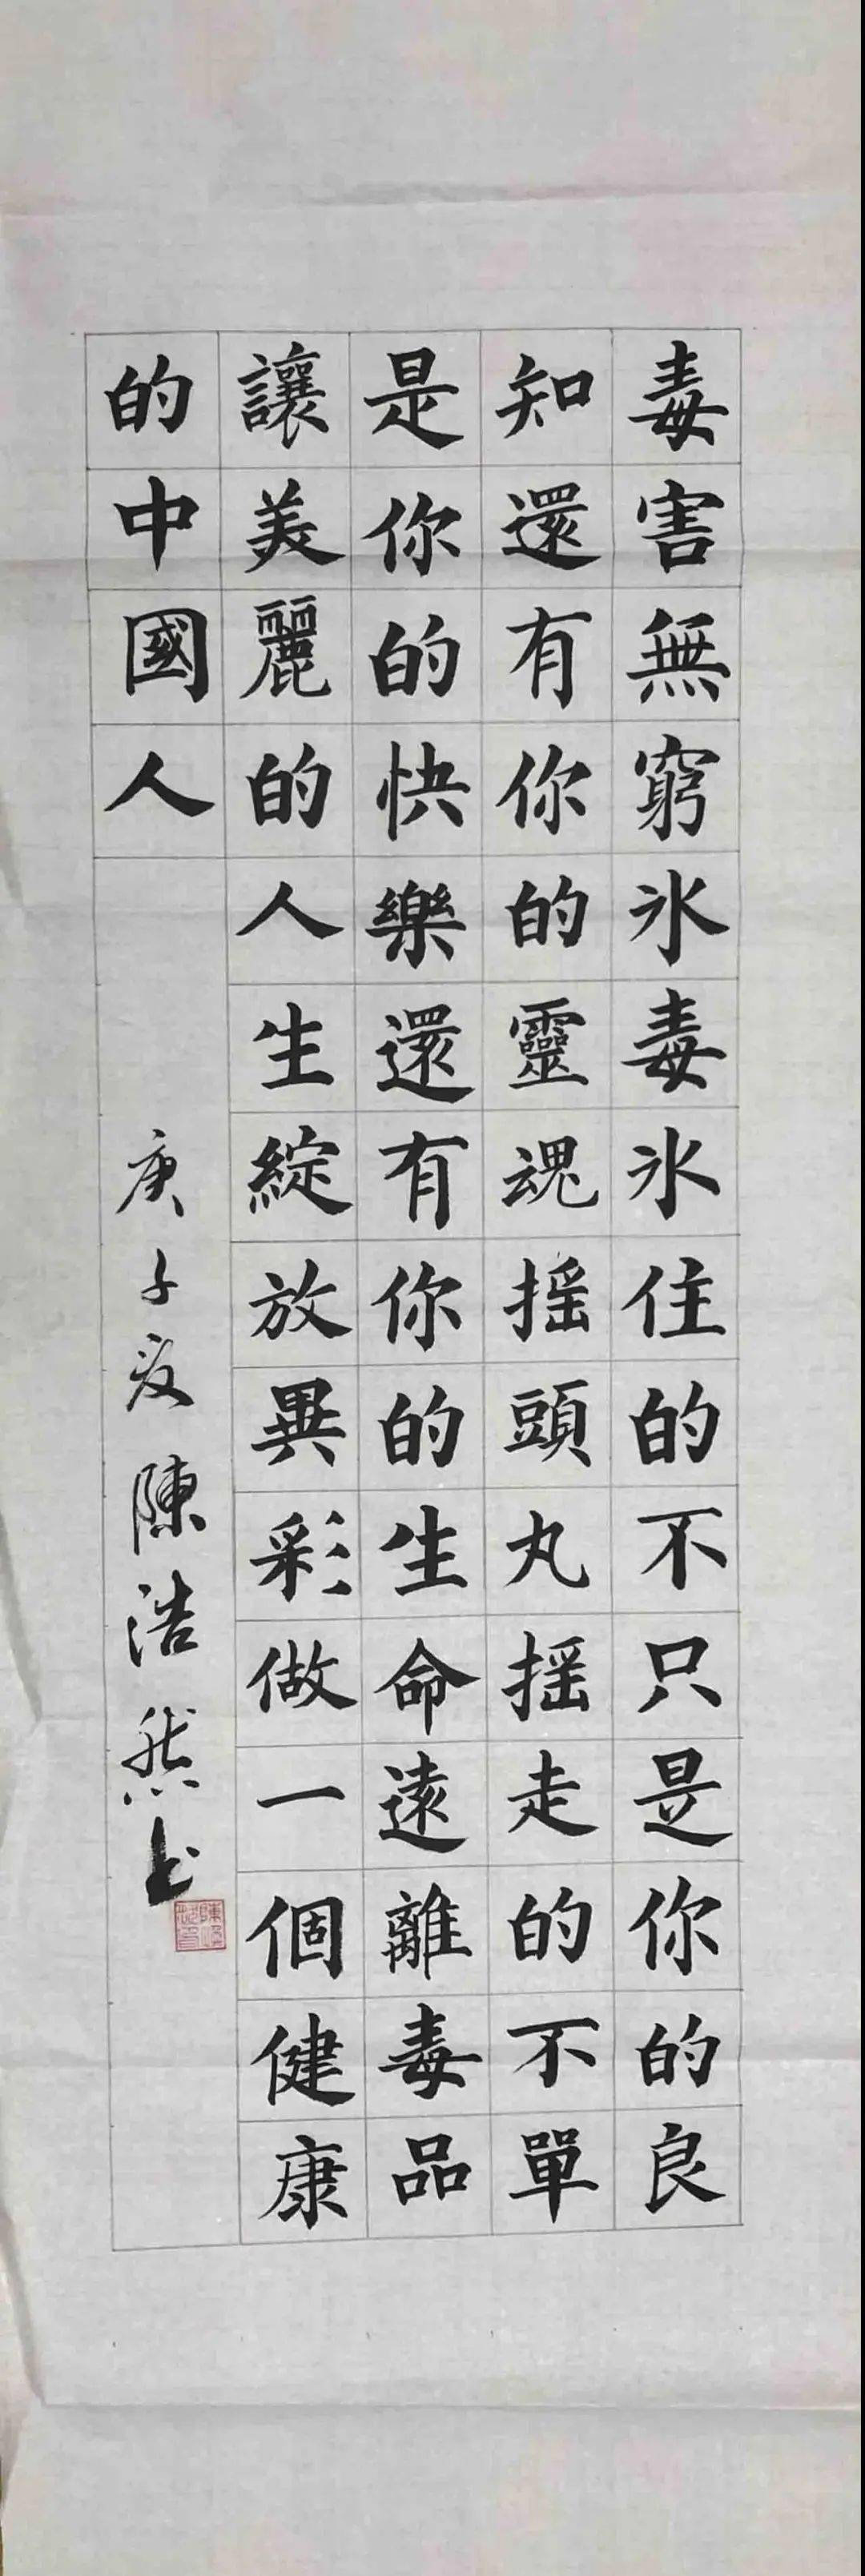 毒害無窮冰毒冰住的不只是你的良
知還有你的靈魂摇頭丸摇走的不單
是你的快樂還有你的生命遠離毒品
讓美麗的人生綻放異彩做一個健康
的中國人
庚子夏陳浩然书